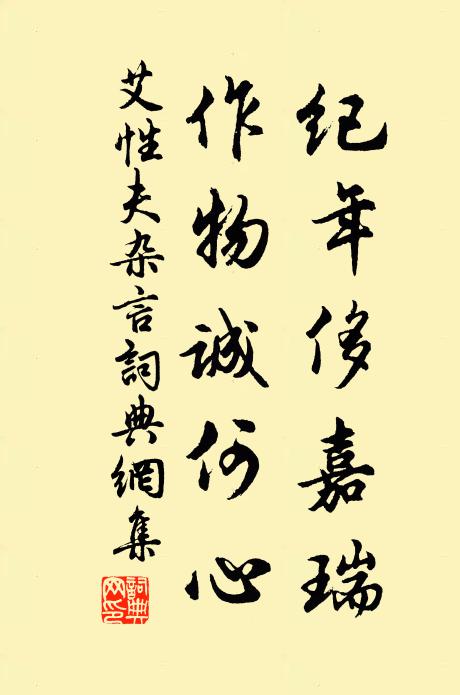 纪年侈嘉瑞
作物诚何心
艾性夫杂言词典網集
詞典網印